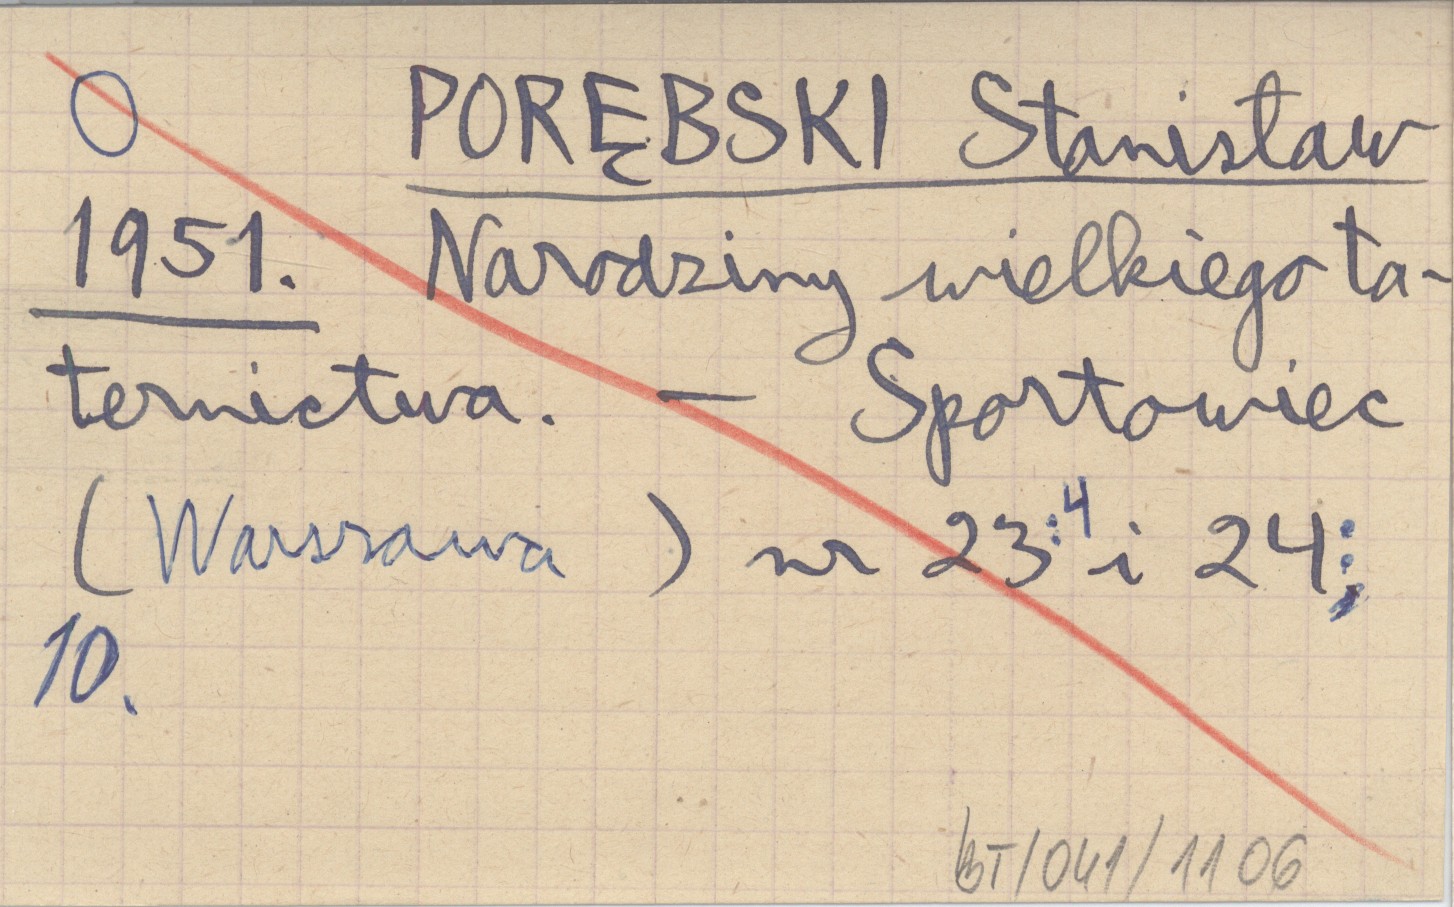 O PORĘBSKI Stanisław
1951. Narodziny wielkiego ta-
ternictwa. — Sportowiec
(Warszawa) nr 23:4 i 24:;
10.
BT/041/1106